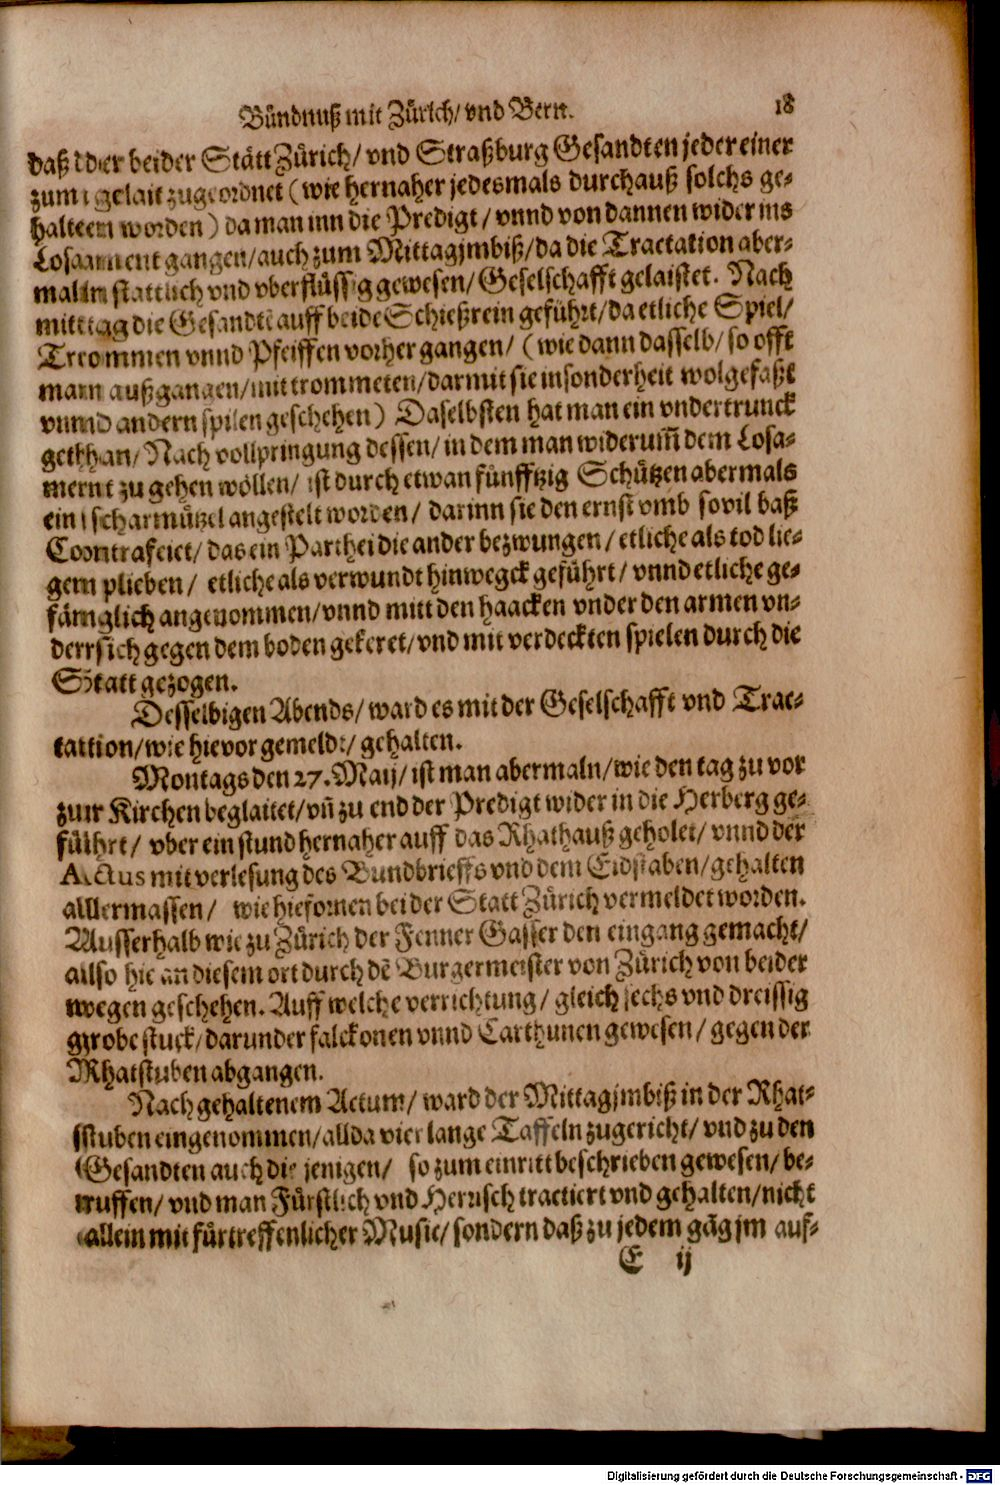 Bündnuß mit Zürich/ vnd Bern. 18
daß der beider Stätt Zürich/ vnd Straßburg Gesandten jeder einer
zum gelait zugeordnet (wie hernaher jedesmals durchauß solchs ge-
halten worden) da man inn die Predigt/ vnnd von dannen wider ins
Losament gangen/ auch zum Mittagjmbiß/ da die Tractation aber-
maln stattlich vnd vberflüssig gewesen/ Geselschafft gelaistet. Nach
mittag die Gesandtē auff beide Schießrein geführt/ da etliche Spiel/
Trommen vnnd Pfeiffen vorher gangen/ (wie dann dasselb/ so offt
man außgangen/ mit trommeten/ darmit sie insonderheit wolgefaßt
vnnd andern spilen geschehen) Daselbsten hat man ein vndertrunck
gethan/ Nach vollpringung dessen/ in dem man widerum̄ dem Losa-
ment zu gehen wöllen/ ist durch etwan fünfftzig Schützen abermals
ein scharmützel angestelt worden/ darinn sie den ernst vmb sovil baß
Contrafeiet/ das ein Parthei die ander bezwungen/ etliche als tod lie-
gen plieben/ etliche als verwundt hinwegck geführt/ vnnd etliche ge-
fänglich angenommen/ vnnd mitt den haacken vnder den armen vn-
dersich gegen dem boden gekeret/ vnd mit verdeckten spielen durch die
Statt gezogen.
Desselbigen Abends/ ward es mit der Geselschafft vnd Trac-
tation/ wie hievor gemeldt/ gehalten.
Montags den 27. Maij/ ist man abermaln/ wie den tag zu vor
zur Kirchen beglaitet/ vn̄ zu end der Predigt wider in die Herberg ge-
führt/ vber ein stund hernaher auff das Rhathauß geholet/ vnnd der
Actus mit verlesung des Bundbrieffs vnd dem Eidstaben/ gehalten
allermassen/ wie hiefornen bei der Statt Zürich vermeldet worden.
Ausserhalb wie zu Zürich der Fenner Gasser den eingang gemacht/
also hie an diesem ort durch dē Burgermeister von Zürich von beider
wegen geschehen. Auff welche verrichtung/ gleich sechs vnd dreissig
grobe stuck/ darunder falckonen vnnd Carthunen gewesen/ gegen der
Rhatstuben abgangen.
Nach gehaltenem Actum/ ward der Mittagjmbiß in der Rhat-
stuben eingenommen/ allda vier lange Taffeln zugericht/ vnd zu den
Gesandten auch die jenigen/ so zum einritt beschrieben gewesen/ be-
ruffen/ vnd man Fürstlich vnd Herrisch tractiert vnd gehalten/ nicht
allein mit fürtreffenlicher Music/ sondern daß zu jedem gāg jm auf-
E ij
Digitalisierung gefördert durch die Deutsche Forschungsgemeinschaft - DFG